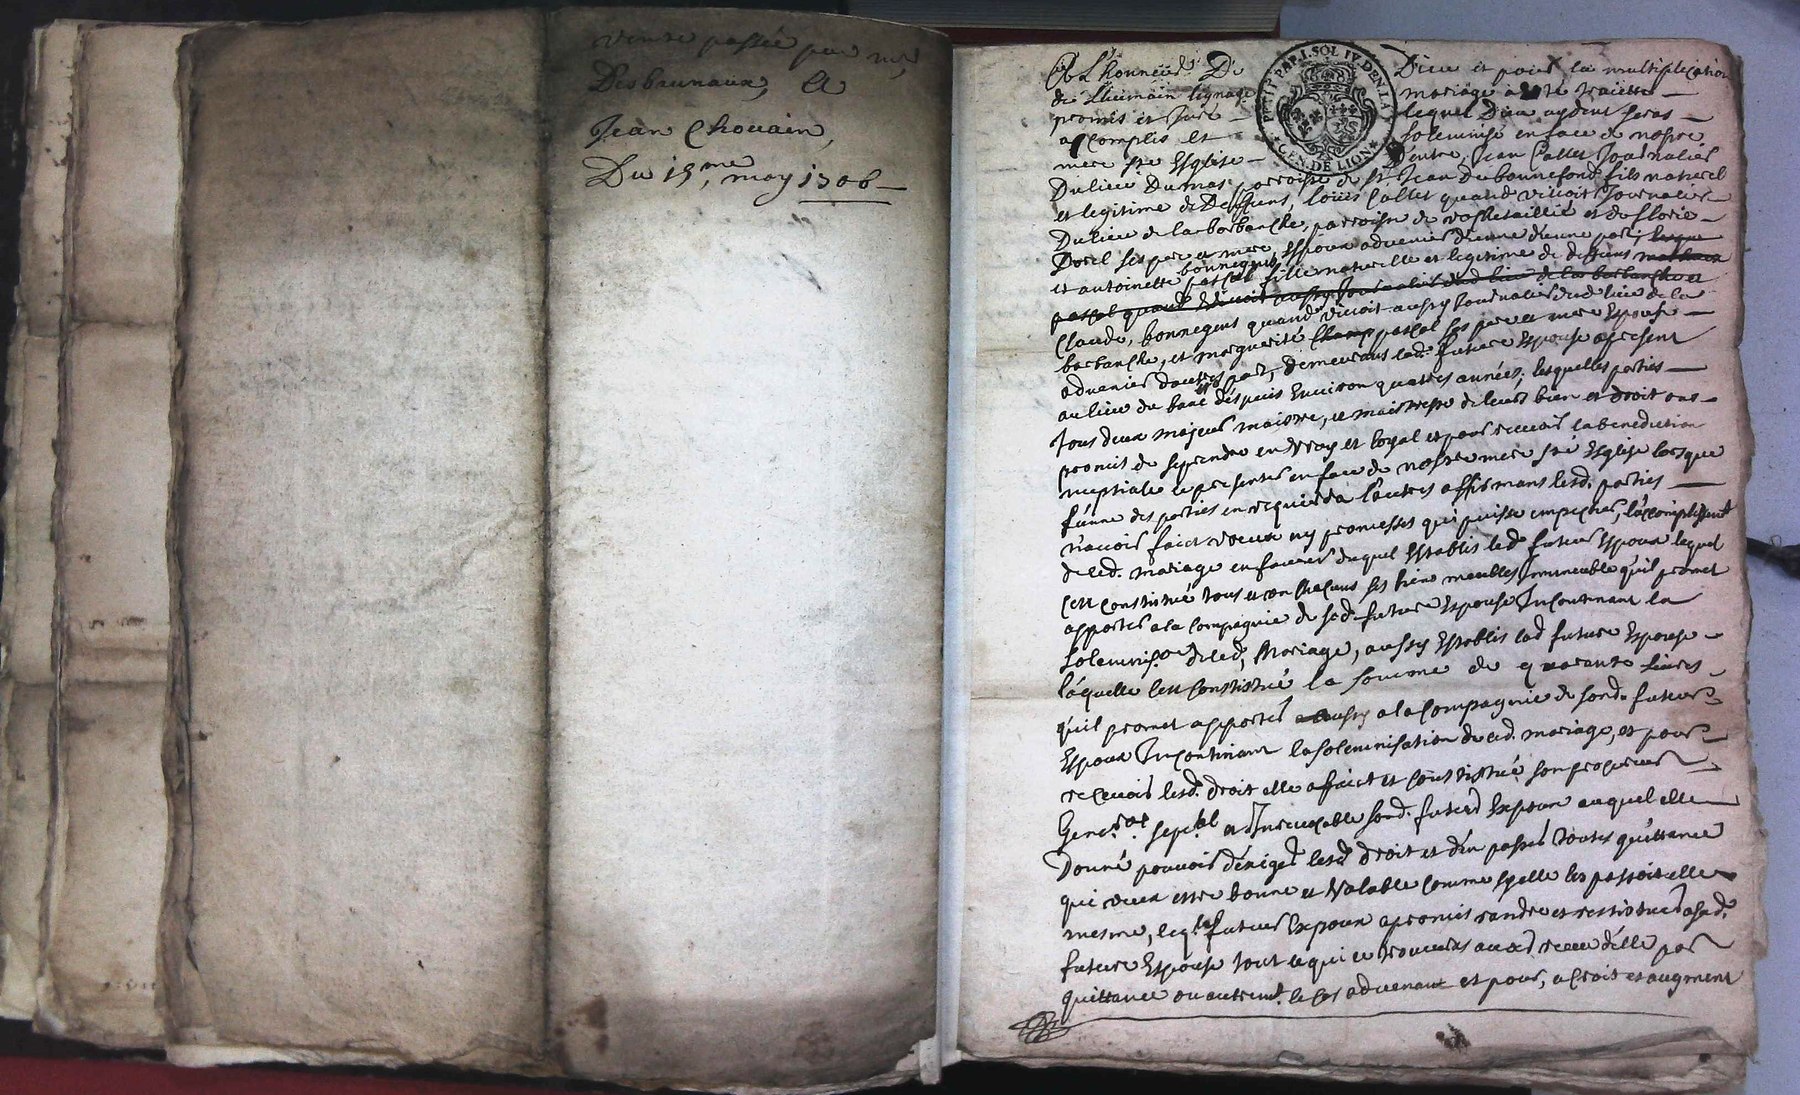 vente passée par mr
Desbruneaux, A
Jean Chouain,
Du 15,me may 1706
A L'honneur De Dieu et pour la multiplication
de L'humain lignage mariage a esté traicté
promis et Juré lequel Dieu aydent seras
accomplis et solemnisé en face de nostre
mere ste Esglise D'entre, Jean Callet Journalier
Du lieu Dumas parroisse de st Jean De bonnefond fils naturel
et legitime de Deffuns, loüis Callet quand vivoit Journalier
Du lieu de la barbanche, parroisse de rochetaillié et de florie
Dorel ses pere et mere Espoux advenier d'une d'une part,
et antoinette bonnegens fille naturelle et legitime de deffuns
Claude, bonnegens quand vivoit aussy Journalier dud. lieu de la
barbanche, et marguerite pascal ses pere et mere Espouse
advenier d'autre part, demeurans lad. future Espouse apresent
au lieu du banc despuis Environ quattres années; lesquelles parties
tous deux majeur maistre, et maistresse de leurs bien et droit ont
promit de seprendre en vray et loyal et pour recevoir la benediction
nuptiale se presenter en face de nostre mere sté Esglise lorsque
l'unne des parties en requiera l'autres affirmans lesd. parties
n'avoir faict voeux ny promesses qui puisse empecher, l'acomplissent
de led. mariage en faveur duquel Establis led. futur Espoux lequel
c'est constitué tous et un chacuns ses bien meubles Immeuble qu'il promet
apporter a la Compagnie de sad. future Espouse Incontinant la
solemnison de led, Mariage, aussy Establis lad. future Espouse
laquelle s'est constitué la somme de quarante livres
qu'il promet apporter aussy a la Compagnie de sond. futeur
Espoux Incontinant la solemnisation de led. mariage, et pour
recevoir lesd. droit elle a faict et constitué son procureur
Gen.ral spec.al et Irrevocable sond. futeur Espoux auquel elle
Donné pouvoir d'exiger lesd. droit et d'en passer toutes quittance
qui veux estre bonne et Valable comme sy elle les passoit elle
mesme, leq.l futeur Espoux a promis randre et restituer a sad.
future Espouse tout ce qui ce trouvera avoir receu d'elle par
quittance ou autremt. le cas advenant et pour, acroit et augment
PETIT PAP. 1. SOL IV. DEN. LA
GEN. DE LION